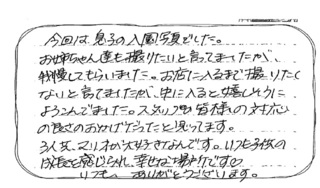 今回は息子の入園写真でした。
お姉ちゃん達も撮りたいと言ってましたが、
我慢してもらいました。お店に入るまで撮りたく
ないと言ってましたが、中に入ると嬉しそうに
よろこんでました。スタッフの皆様の対応
の良さのおかげだったと思ってます。
3人共、マリオが大好きなんです。いつも子供の
成長を感じられ、幸せな場所です♡
いつも、ありがとうございます。